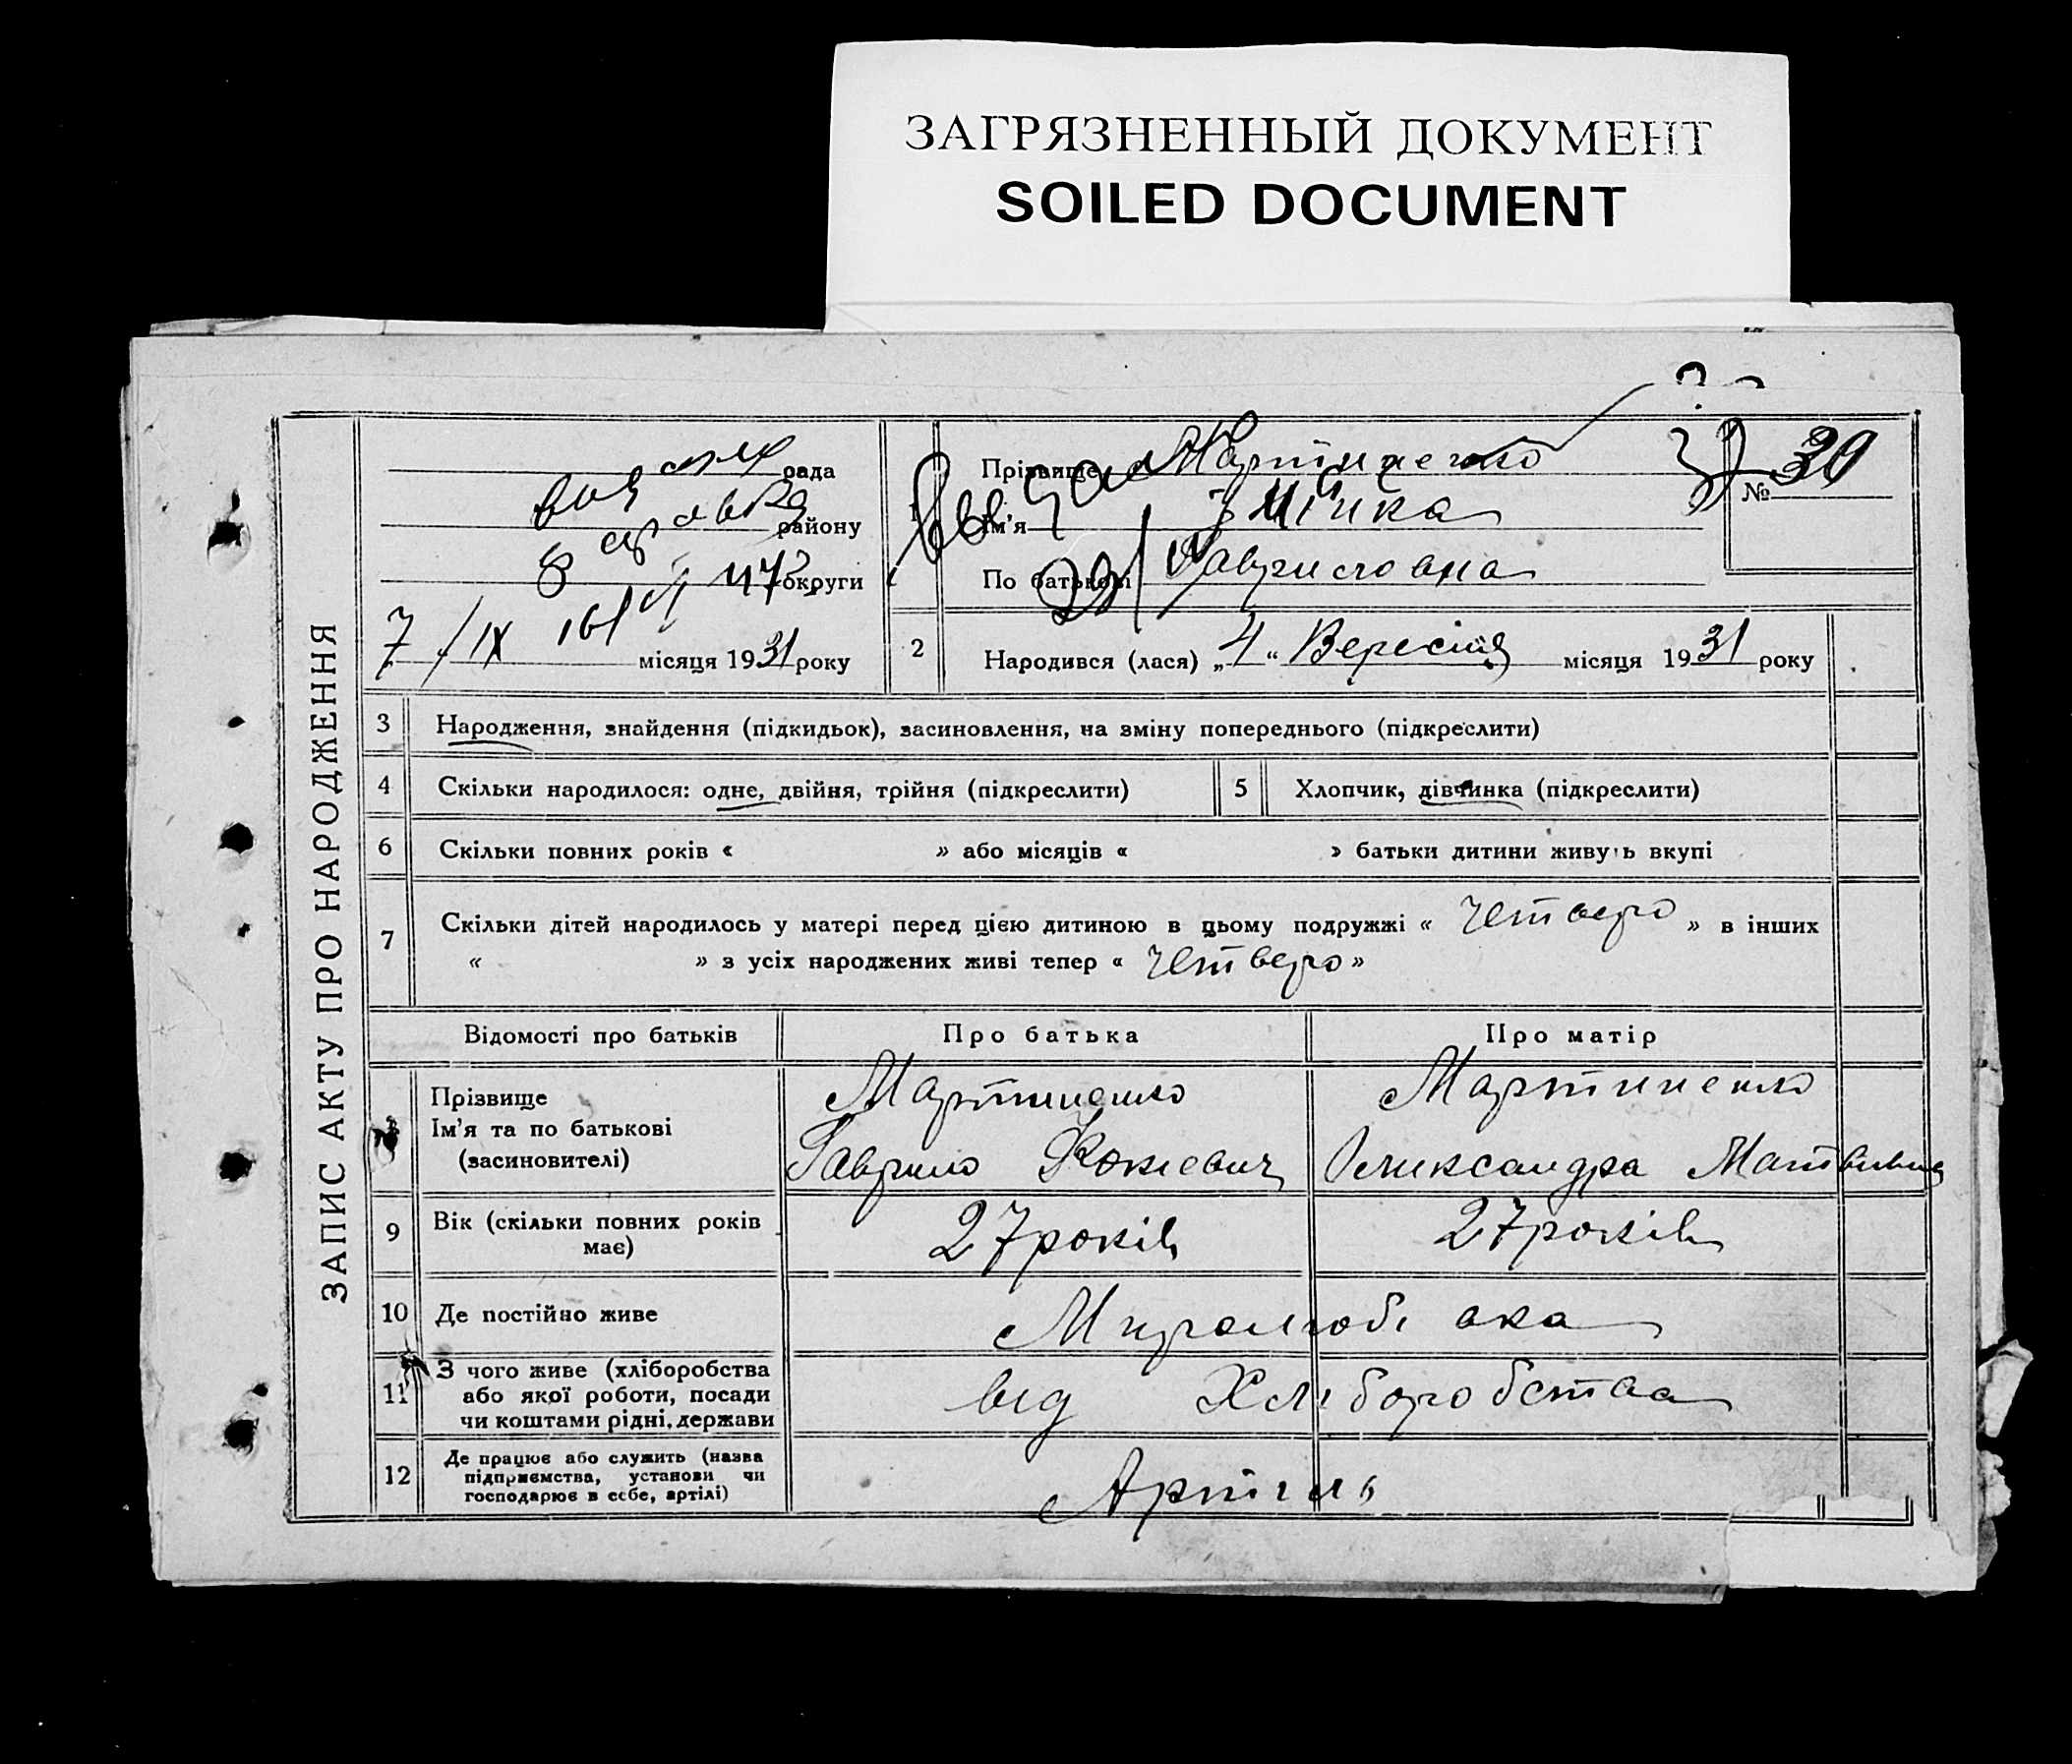 ЗАГРЯЗНЕННЫЙ ДОКУМЕНТ
SOILED DOCUMENT
ЗАПИС АКТУ ПРО НАРОДЖЕННЯ
рада
району
округи
7 / IX місяця 1931 року
1
Прізвище Мартиненко
Ім’я
По батькові Гавриловна
№ 30
2 Народився (лася) „4“ Вересня місяця 1931 року
3 Народження, знайдення (підкидьок), засиновлення, на зміну попереднього (підкреслити)
4 Скільки народилося: одне, двійня, трійня (підкреслити) 5 Хлопчик, дівчинка (підкреслити)
6 Скільки повних років « » або місяців « » батьки дитини живуть вкупі
7 Скільки дітей народилось у матері перед цією дитиною в цьому подружжі « четверо » в інших
« » з усіх народжених живі тепер « четверо »
Відомості про батьків Про батька Про матір
8 Прізвище Мартиненко Мартиненко
Ім’я та по батькові
(засиновителі) Гаврило Олександра
9 Вік (скільки повних років має) 27 років 27 років
10 Де постійно живе
11 З чого живе (хліборобства
або якої роботи, посади
чи коштами рідні, держави від Хліборобства
12 Де працює або служить (назва
підприємства, установи чи
господарює в себе, артілі) Артіль